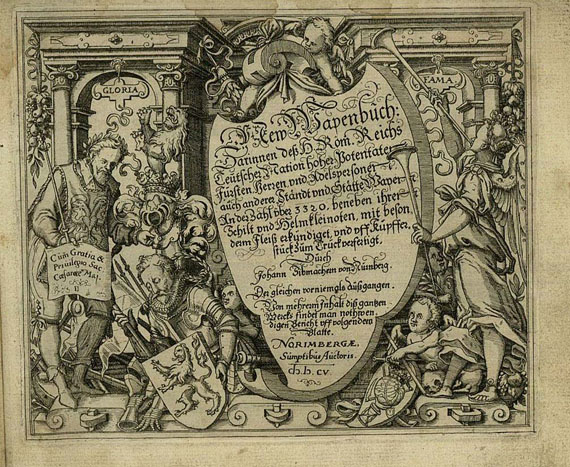 GLORIA
FAMA
New Wapenbuch:
Darinnen deß H. Röm. Reichs
Teutscher Nation hoher Potentaten
Fürsten Herren und Adelspersonen
auch anderer Ständt und Stätte Wapen
An der Zahl über 3320. beneben ihrer
Schilt und Helmkleinoten, mit beson,
derm Fleiß erkündiget, und vff Kupffer,
stück zum Truck verfertigt,
Durch
Johann Sibmachern von Nürnberg.
Der gleichen vorniemals außgangen.
Von mehrerm Inhalt diß gantzen
Wercks findet man nothwen,
digen Bericht vff volgendem
Blatte.
NORIMBERGÆ,
Sumptibus Auctoris.
CV
Cum Gratia &
Privilegio Sac.
Cæsareæ Mai.